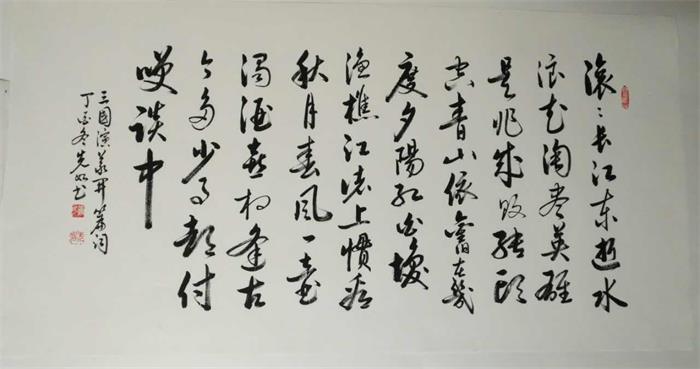 滚〻長江东逝水
浪花淘尽英雄
是非成败转头
空青山依舊在幾
度夕陽红白髮
渔樵江渚上慣看
秋月春风一壶
濁酒喜相逢古
今多少事都付
笑談中
三國演义开篇词
丁酉冬先如书